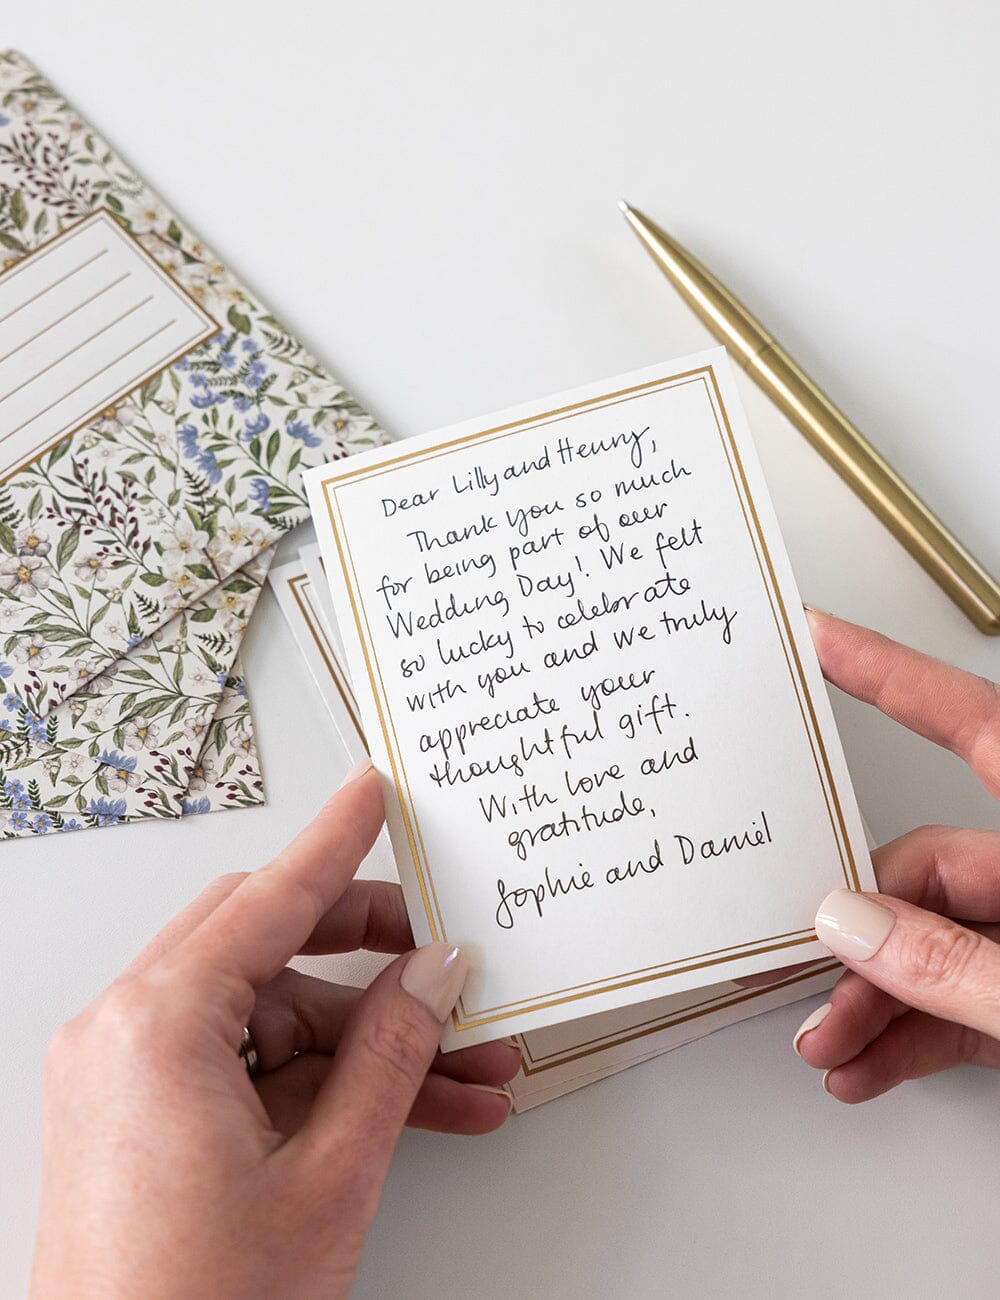 Dear Lilly and Henry,
Thank you so much
for being part of our
Wedding Day! We felt
so lucky to celebrate
with you and we truly
appreciate your
thoughtful gift.
With love and
gratitude,
Sophie and Daniel